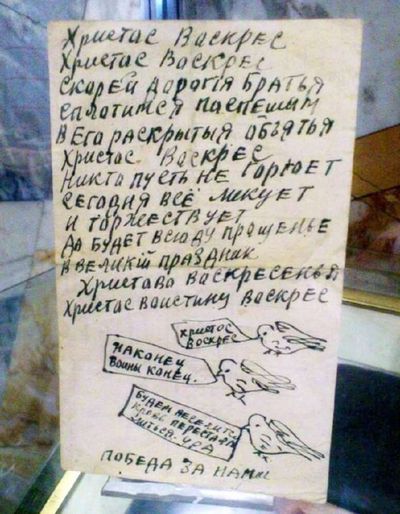 Христас Васкрес
Христас Васкрес
Скорей дорогiя Братья
сплотимся паспешым
в его раскрытыя объятья
Христас Васкрес
Никта пусть не горюет
сегодня всё ликует
и торжествует
да будет всюду прощенье
в великiй праздник
Христава васкресенья
Христас ваистину васкрес
Христос
воскрес
Наконец
воины конец.
Будем
кровь
ура
Победа за нами